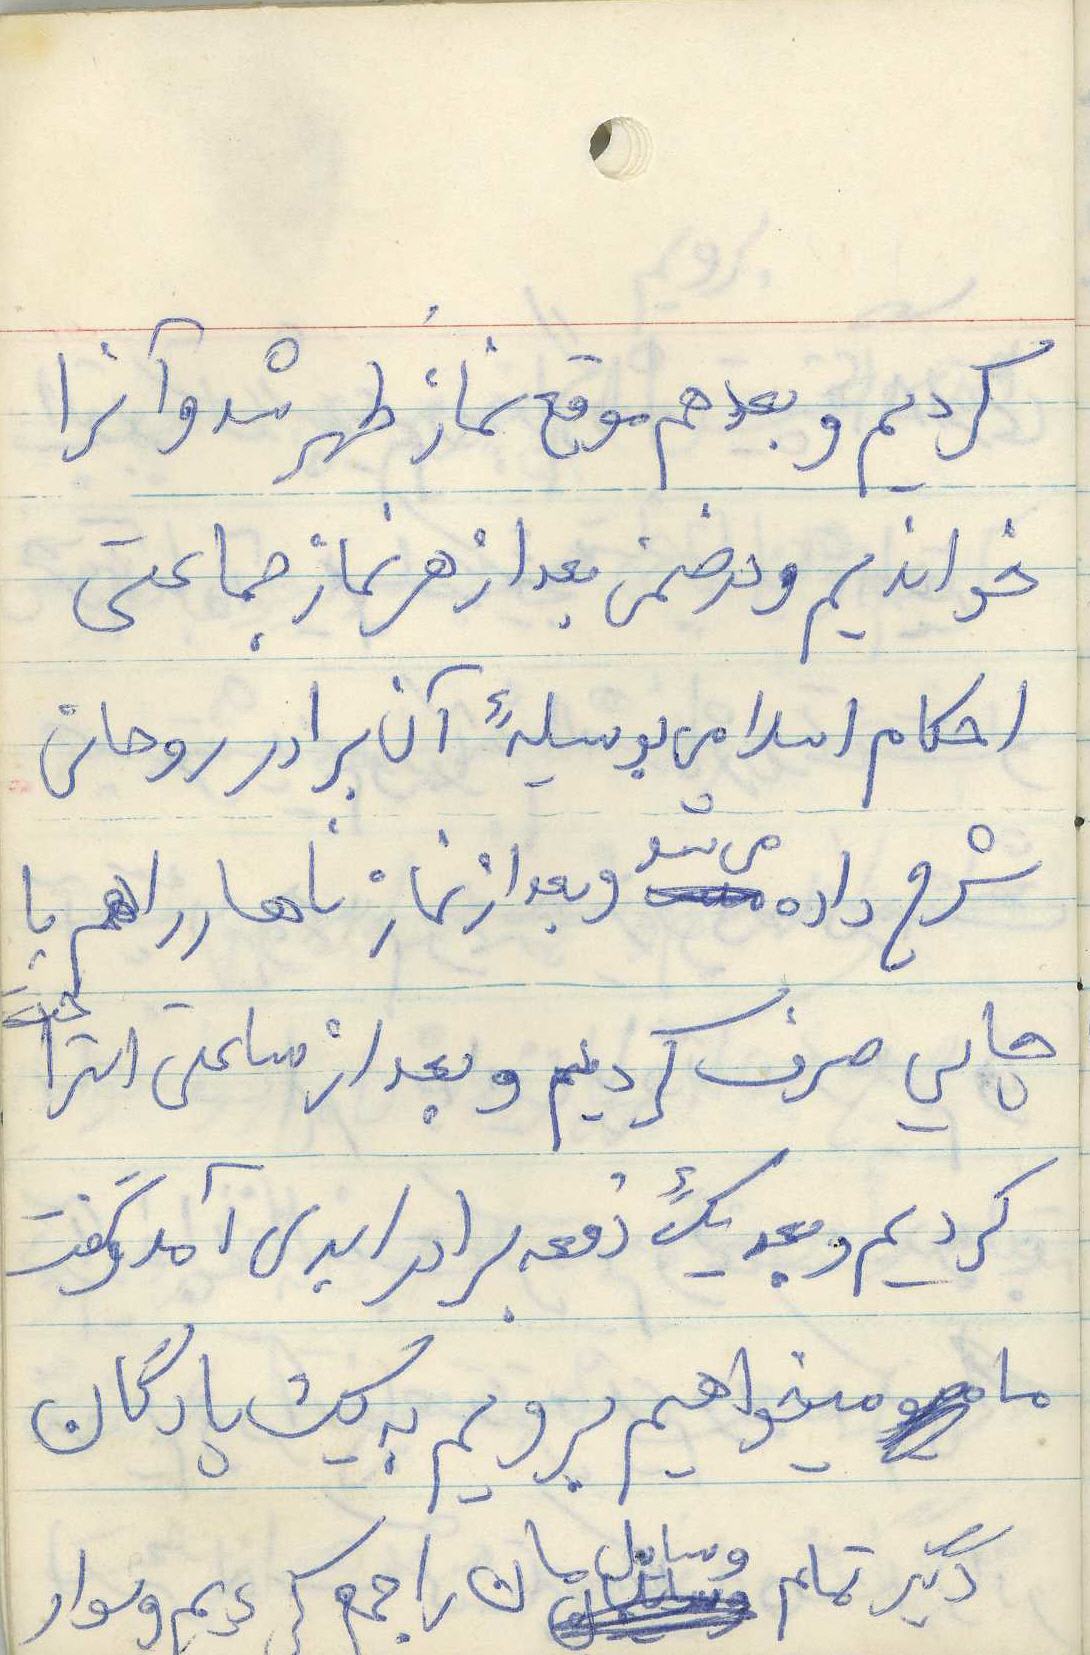 کردیم و بعد هم موقع نماز ظهر شد و آنرا
خواندیم و در ضمن بعد از هر نماز جماعتی
احکام اسلامی بوسیلهٔ آن برادر روحانی
شرح داده می شد و بعد از نماز ناهار را هم با
چایی صرف کردیم و بعد از ساعتی استراحت
کردیم و بعد یک دفعه برادر ایدی آمد و گفت
ما میخواهیم برویم به یک پادگان
دگیر تمام وسایل مان را جمع کردیم و سوار